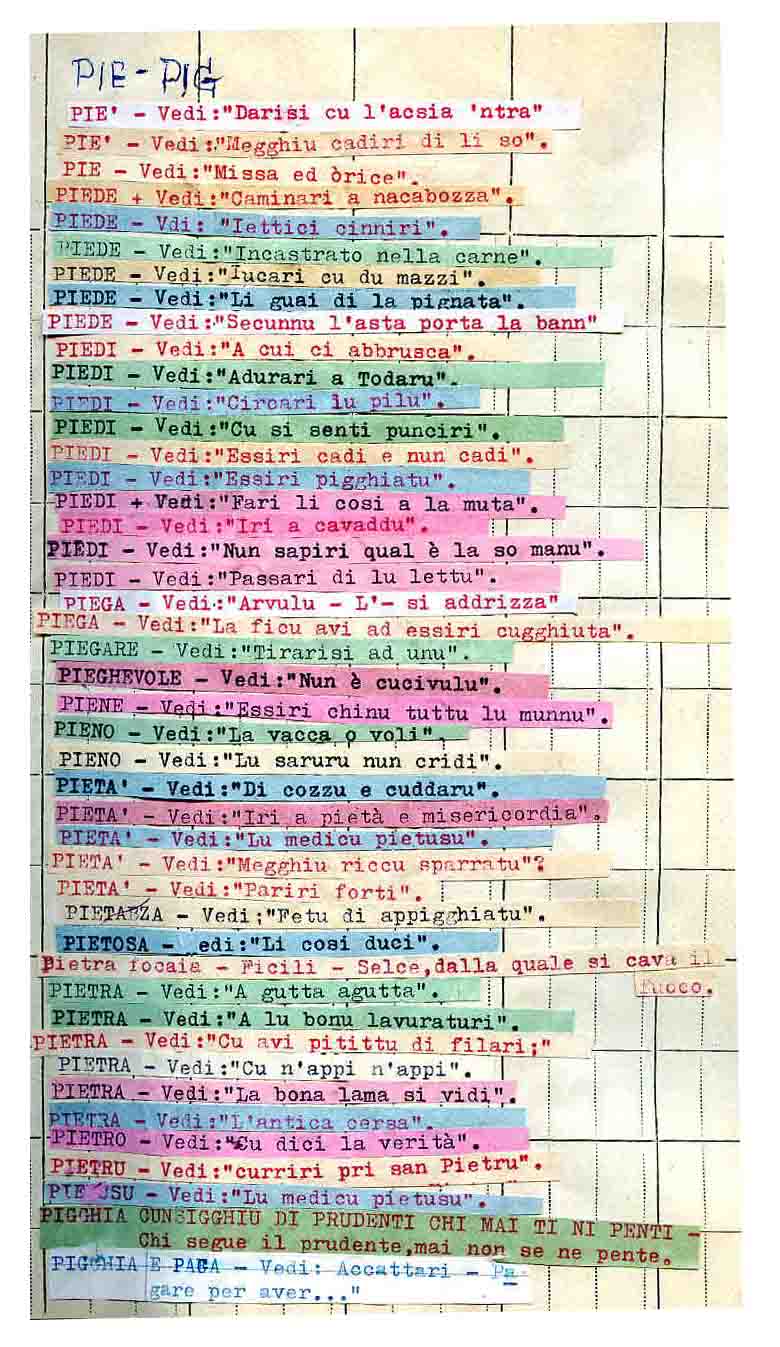 PIE - PIG
PIE' - Vedi:"Darisi cu l'acsia 'ntra"
PIE' - Vedi:"Megghiu cadiri di li so".
PIE - Vedi:"Missa ed òrice".
PIEDE + Vedi:"Caminari a nacabozza".
PIEDE - Vdi: "Iettici cinniri".
PIEDE - Vedi:"Incastrato nella carne".
PIEDE - Vedi:"Iucari cu du mazzi".
PIEDE - Vedi:"Li guai di la pignata".
PIEDE - Vedi:"Secunnu l'asta porta la bann"
PIEDI - Vedi:"A cui ci abbrusca".
PIEDI - Vedi:"Adurari a Todaru".
PIEDI - Vedi:"Circari lu pilu".
PIEDI - Vedi:"Cu si senti punciri".
PIEDI - Vedi:"Essiri cadi e nun cadi".
PIEDI - Vedi:"Essiri pigghiatu".
PIEDI + Vedi:"Fari li cosi a la muta".
PIEDI - Vedi:"Iri a cavaddu".
PIEDI - Vedi:"Nun sapiri qual è la so manu".
PIEDI - Vedi:"Passari di lu lettu".
PIEGA - Vedi:"Arvulu - L'- si addrizza"
PIEGA - Vedi:"La ficu avi ad essiri cugghiuta".
PIEGARE - Vedi:"Tirarisi ad unu".
PIEGHEVOLE - Vedi:"Nun è cucivulu".
PIENE - Vedi:"Essiri chinu tuttu lu munnu".
PIENO - Vedi:"La vacca o voli".
PIENO - Vedi:"Lu saruru nun cridi".
PIETA' - Vedi:"Di cozzu e cuddaru".
PIETA' - Vedi:"Iri a pietà e misericordia".
PIETA' - Vedi:"Lu medicu pietusu".
PIETA' - Vedi:"Megghiu riccu sparratu"?
PIETA' - Vedi:"Pariri forti".
PIETANZA - Vedi;"Fetu di appigghiatu".
PIETOSA - edi:"Li cosi duci".
Pietra focaia - Ficili - Selce,dalla quale si cava il
fuoco.
PIETRA - Vedi:"A gutta agutta".
PIETRA - Vedi:"A lu bonu lavuraturi".
PIETRA - Vedi:"Cu avi pitittu di filari;"
PIETRA - Vedi:"Cu n'appi n'appi".
PIETRA - Vedi:"La bona lama si vidi".
PIETRA - Vedi:"L'antica cersa".
PIETRO - Vedi:"Cu dici la verità".
PIETRU - Vedi:"curriri pri san Pietru".
PIETUSU - Vedi:"Lu medicu pietusu".
PIGGHIA CUNSIGGHIU DI PRUDENTI CHI MAI TI NI PENTI -
Chi segue il prudente,mai non se ne pente.
PIGGHIA E PAGA - Vedi: Accattari - Pa-
gare per aver..."